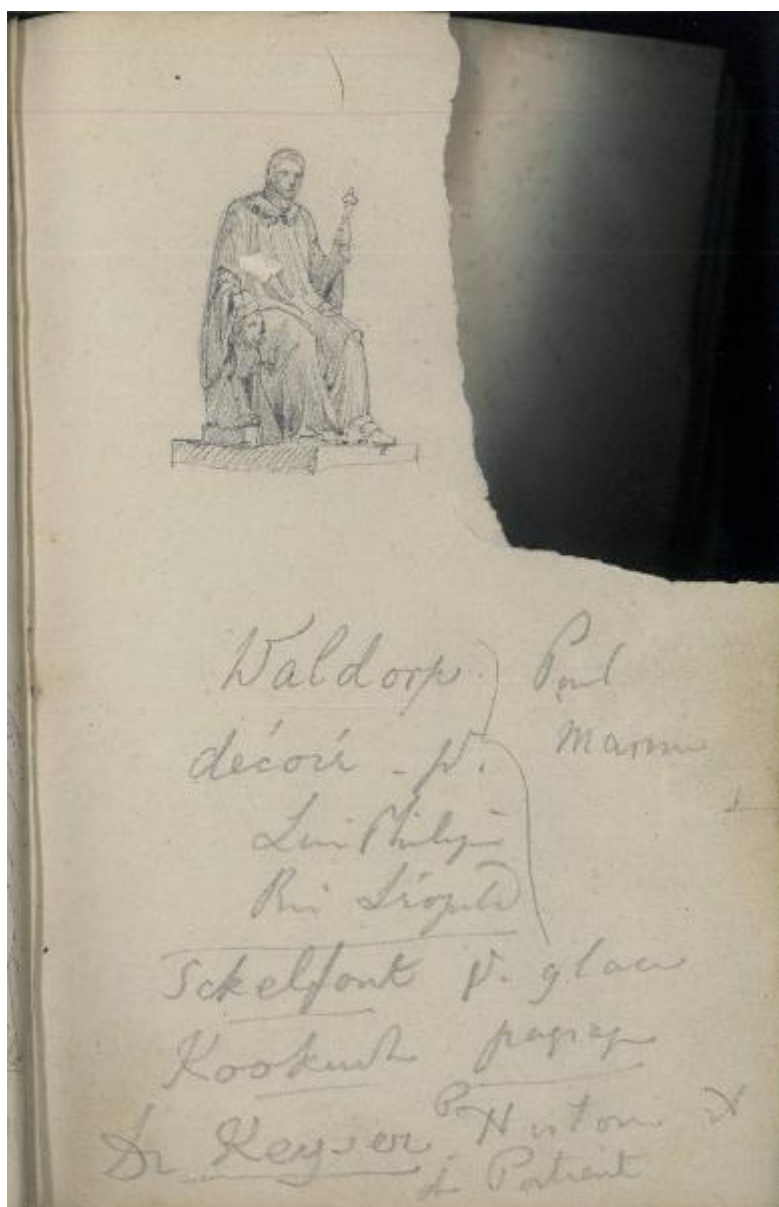 Waldorp. Peint
décoré - p. Marine
Louis Philippe
Roi Léopold
Sckelfout p. glace
Kookuck paysage
De Keyser Pr Histoire et
de Portrait